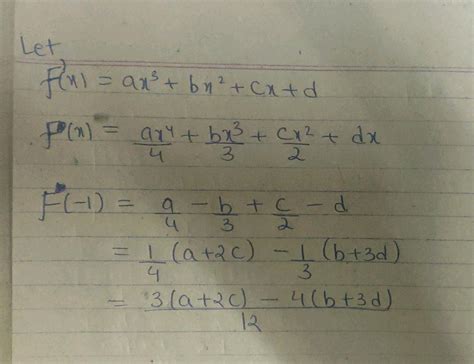 Let
f'(x) = ax³ + bx² + cx + d
F(x) = ax⁴/4 + bx³/3 + cx²/2 + dx
F(-1) = a/4 - b/3 + c/2 - d
= 1/4 (a+2c) - 1/3 (b+3d)
= 3(a+2c) - 4(b+3d)/12